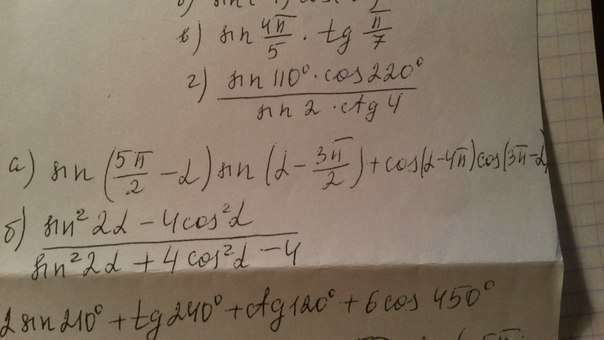 в) sin 4π/5 · tg π/7
г) sin 110° · cos 220° / sin 2 · ctg 4
а) sin (5π/2 - α) sin (α - 3π/2) + cos(α - 4π) cos(3π - α)
б) sin² 2α - 4cos² α / sin² 2α + 4 cos² α - 4
2 sin 210° + tg 240° + ctg 120° + 6 cos 450°